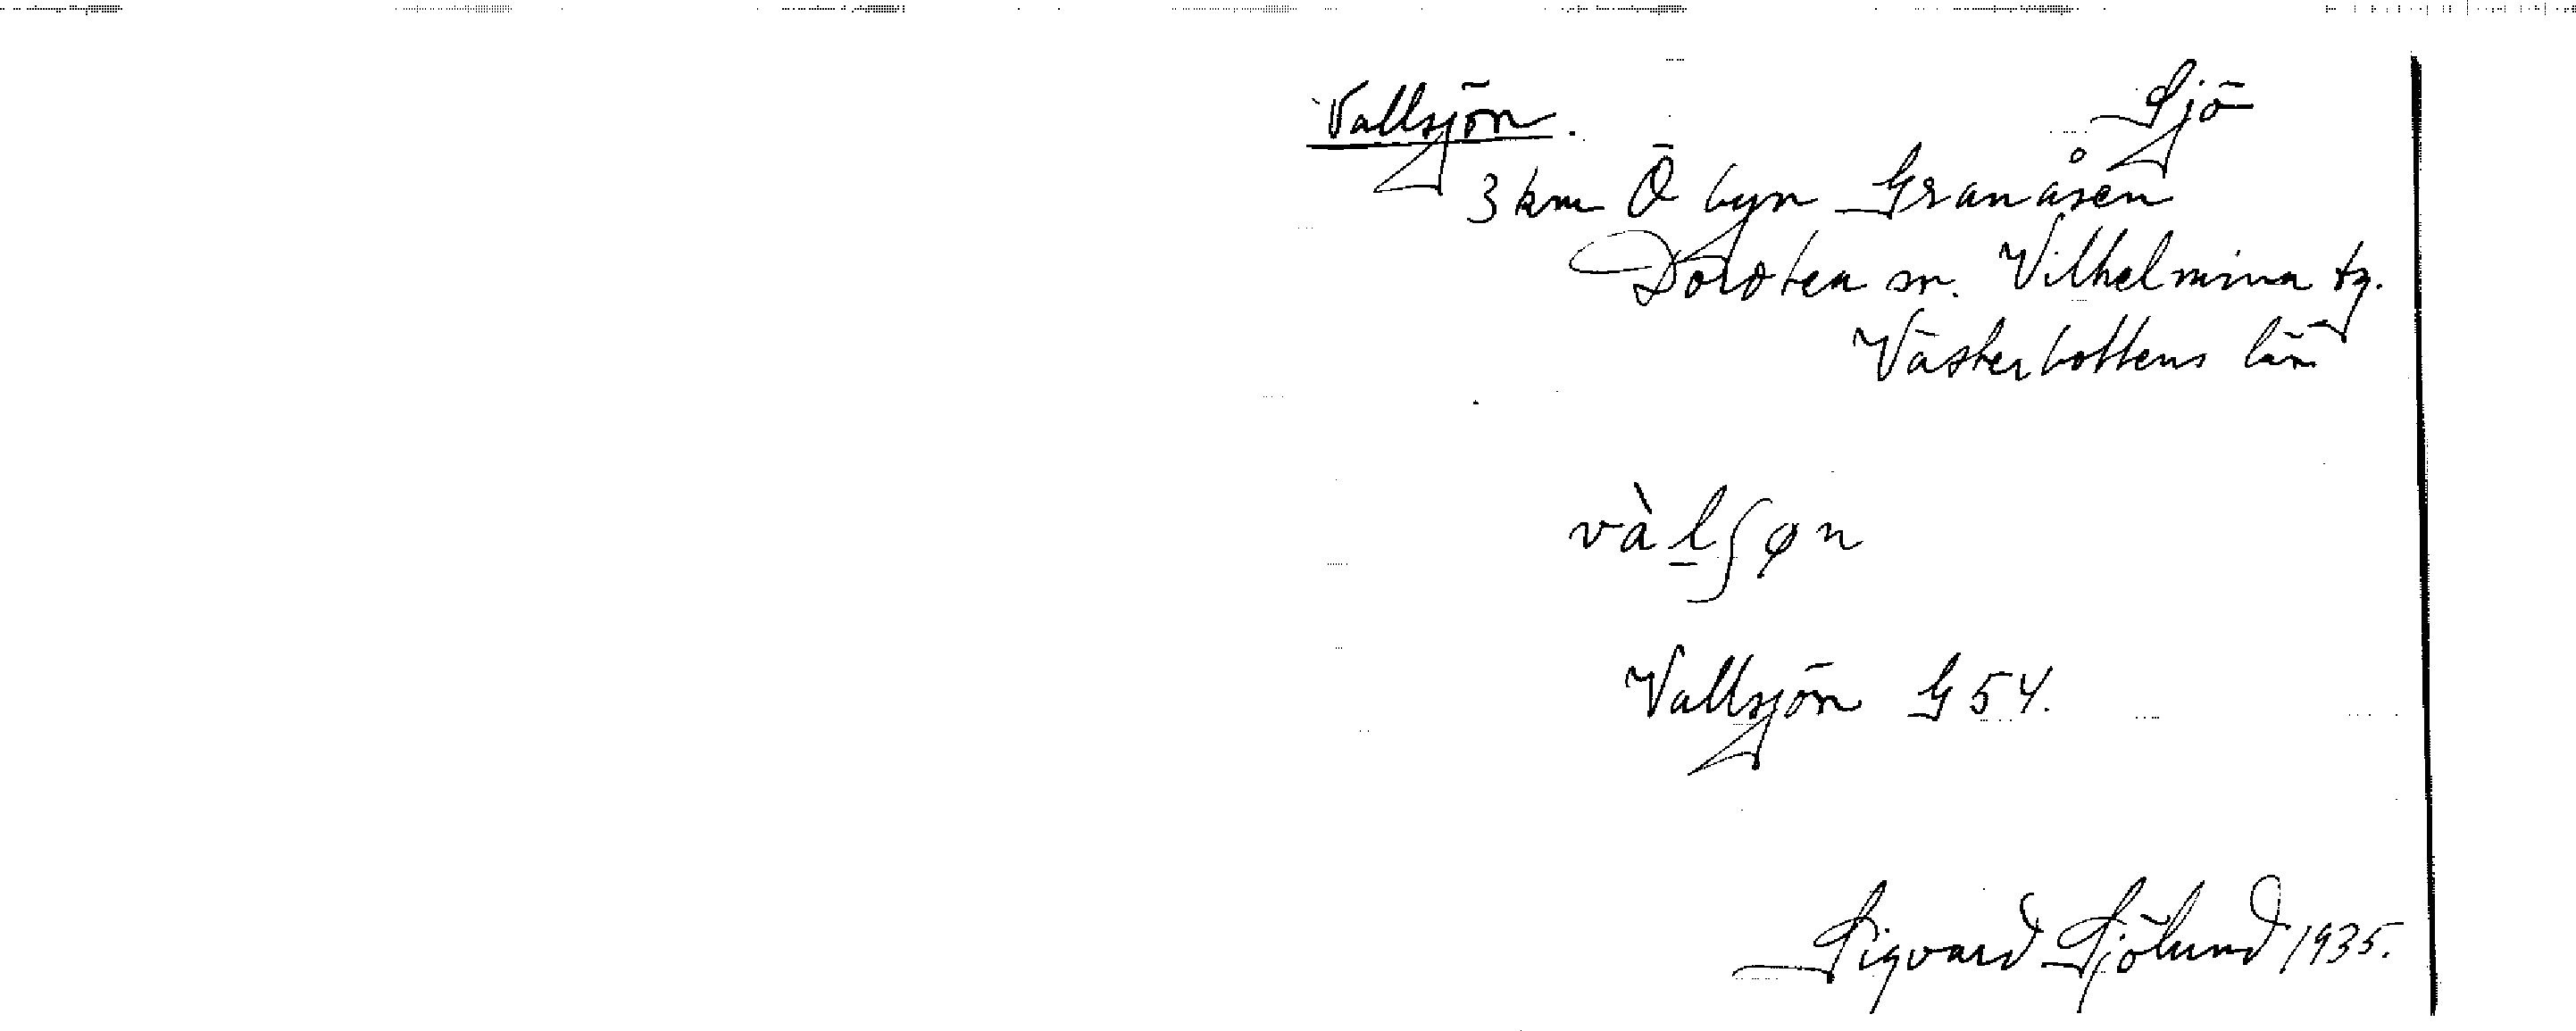 Vallsjön. Sjö
3 km Ö byn Granåsen
Dorotea sn. Vilhelmina tg.
Västerbottens län
vàl̲ʃøn
Vallsjön G 54.
Sigvard Sjölund 1935.